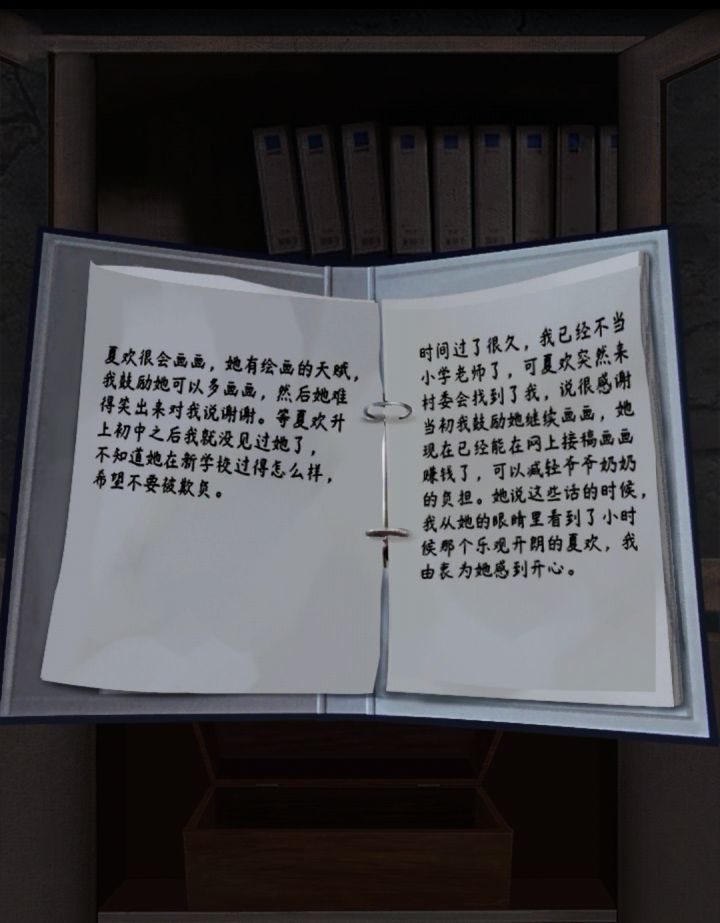 夏欢很会画画，她有绘画的天赋，
我鼓励她可以多画画，然后她难
得笑出来对我说谢谢。等夏欢升
上初中之后我就没见过她了，
不知道她在新学校过得怎么样，
希望不要被欺负。
时间过了很久，我已经不当
小学老师了，可夏欢突然来
村委会找到了我，说很感谢
当初我鼓励她继续画画，她
现在已经能在网上接稿画画
赚钱了，可以减轻爷爷奶奶
的负担。她说这些话的时候，
我从她的眼睛里看到了小时
候那个乐观开朗的夏欢，我
由衷为她感到开心。